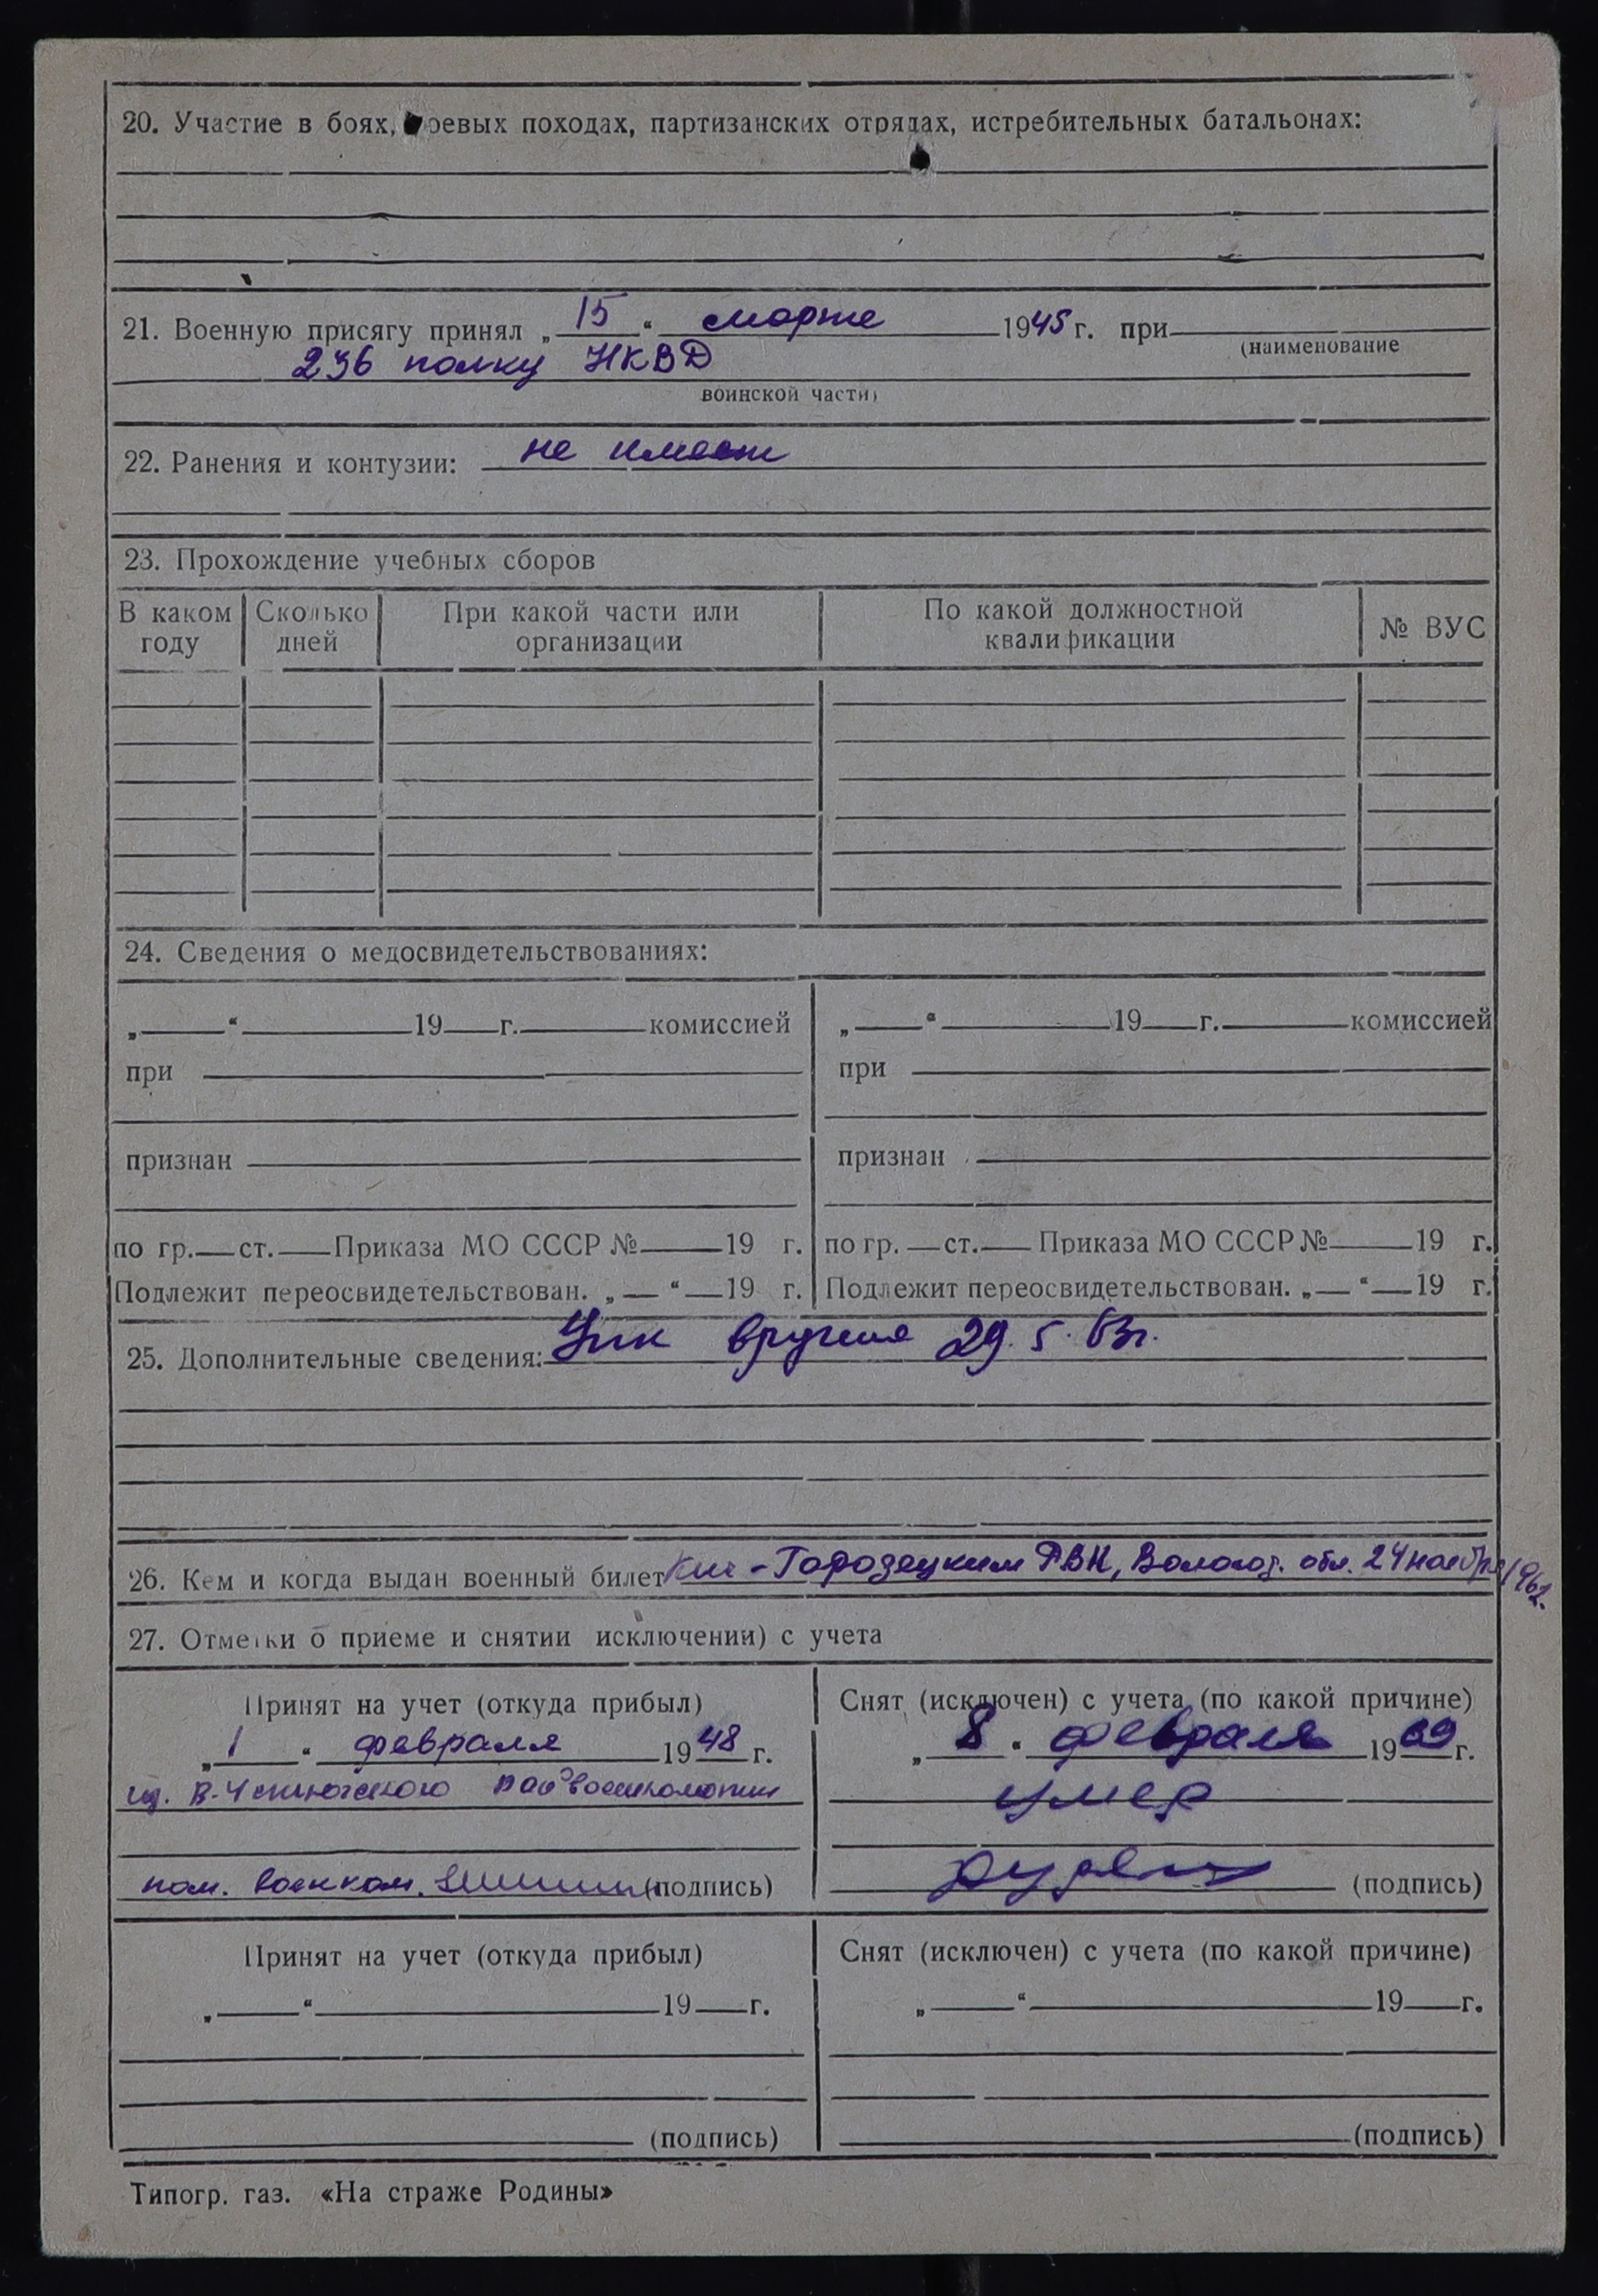 20. Участие в боях, боевых походах, партизанских отрядах, истребительных батальонах:
21. Военную присягу принял „ 15 “ марта 1945 г. при
(наименование
236 полку НКВД
воинской части)
22. Ранения и контузии: не имеет
23. Прохождение учебных сборов
В каком году Сколько дней При какой части или организации По какой должностной квалификации № ВУС
24. Сведения о медосвидетельствованиях:
„ “ 19 г. комиссией
при
признан
по гр. ст. Приказа МО СССР № 19 г.
Подлежит переосвидетельствован. „ “ 19 г.
„ “ 19 г. комиссией
при
признан
по гр. ст. Приказа МО СССР № 19 г.
Подлежит переосвидетельствован. „ “ 19 г.
25. Дополнительные сведения: вручена 29.5.63г.
26. Кем и когда выдан военный билет Кич-Городецким РВК, Вологод. обл. 24 ноября 1962.
27. Отметки о приеме и снятии исключении) с учета
Принят на учет (откуда прибыл)
„ 1 “ февраля 1948 г.
из В-Устюгского райвоенкомата
пом. военком. (подпись)
Снят (исключен) с учета (по какой причине)
„ 8 “ февраля 1969 г.
умер
(подпись)
Принят на учет (откуда прибыл)
„ “ 19 г.
(подпись)
Снят (исключен) с учета (по какой причине)
„ “ 19 г.
(подпись)
Типогр. газ. «На страже Родины»